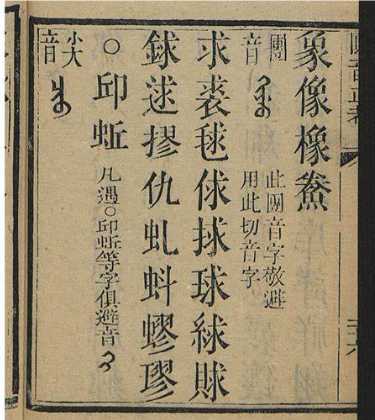 象像橡
團音
此團音字敬避
用此切音字
求裘毬俅捄球絿賕
銶逑摎仇虬蚪蟉璆
○邱蚯 凡遇○邱蚯等字俱避音
尖音